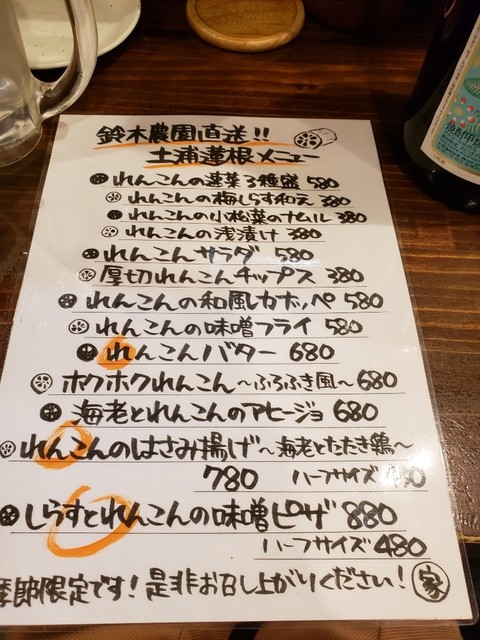 鈴木農園直送!!
土浦蓮根メニュー
れんこんの逸菜3種盛 580
れんこんの梅しらす和え 380
れんこんの小松菜のナムル 380
れんこんの浅漬け 380
れんこんサラダ 580
厚切れんこんチップス 380
れんこんの和風カナッペ 580
れんこんの味噌フライ 580
れんこんバター 680
ホクホクれんこん〜ふろふき風〜680
海老とれんこんのアヒージョ 680
れんこんのはさみ揚げ〜海老とたたき鶏〜
780 ハーフサイズ
しらすとれんこんの味噌ピザ 880
ハーフサイズ480
季節限定です!是非お召し上がりください! 家